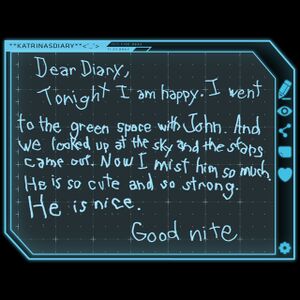 **KATRINASDIARY**<'_'>
Dear Diary,
Tonight I am happy. I went
to the green space with John. And
we looked up at the sky and the stars
came out. Now I mist him so much.
He is so cute and so strong.
He is nice.
Good nite